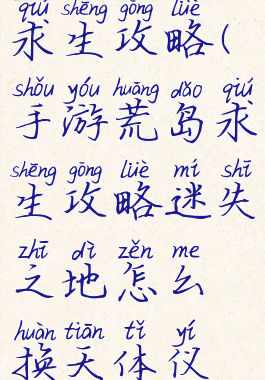 qiú shēng gōng lüè
求生攻略(
shǒu yóu huāng dǎo qiú
手游荒岛求
shēng gōng lüè mí shī
生攻略迷失
zhī dì zěn me
之地怎么
huàn tiān tǐ yí
换天体仪